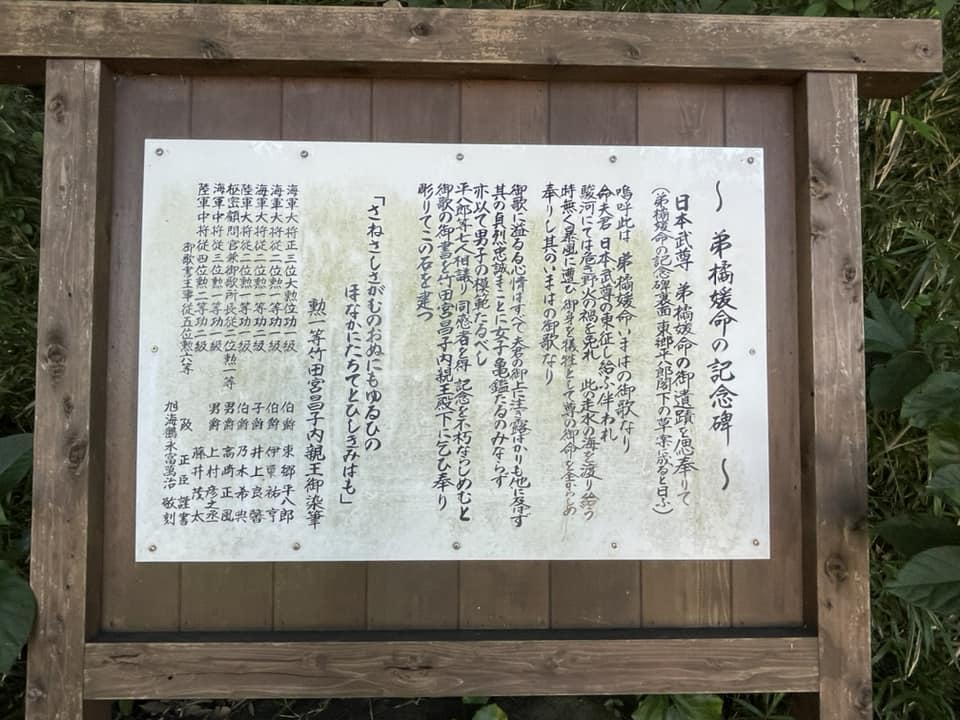 ～ 弟橘媛命の記念碑 ～
日本武尊 弟橘媛命の御遺蹟を思奉りて
（弟橘媛命の記念碑裏面 東郷平八郎閣下の草案に成ると日ふ）
嗚呼此は 弟橘媛命いまはの御歌なり
命夫君 日本武尊の東征し給ふ伴われ
駿河にては危き野火の禍を免れ 此の走水の海を渡り給う
時無く暴風に遭ひ 御身を犠牲として尊の御命を全からしめ
奉りし其のいまはの御歌なり
御歌に溢るる心情はすべて夫君の御上に注ぎ露ばかりも他に及ばず
其の貞烈忠誠まことに女子の亀鑑たるのみならず
亦以て男子の模範たるべし
平八郎等七人相議り同感者を得 記念を不朽ならしめむと
御歌の御書を竹田宮昌子内親王殿下に乞ひ奉り
彫りてこの石を建つ
「さねさしさがむのおぬにもゆるひの
ほなかにたちてとひしきみはも」
勲一等竹田宮昌子内親王御染筆
海軍大将正三位大勲位功一級 伯爵 東郷平八郎
海軍大将従二位勲一等功二級 伯爵 伊東祐亨
海軍大将従二位勲一等功二級 子爵 井上良馨
陸軍大将従二位勲一等功一級 伯爵 乃木希典
枢密顧問官兼御歌所長従二位勲一等 男爵 高崎正風
海軍中将従三位勲一等功一級 男爵 上村彦之丞
陸軍中将従四位勲二等功二級 藤井茂太
御歌書王事従五位勲六等 阪正臣謹書
旭海鶴水富萬治 敬刻